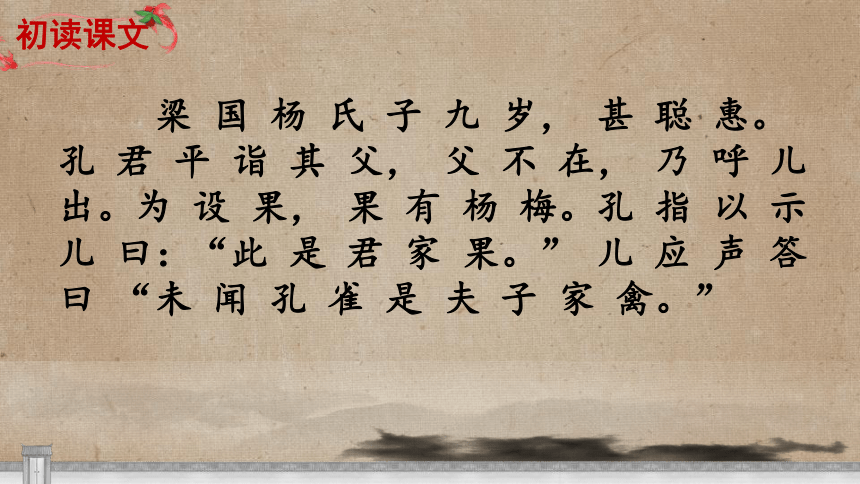 初读课文
梁国杨氏子九岁，甚聪惠。
孔君平诣其父，父不在，乃呼儿
出。为设果，果有杨梅。孔指以示
儿曰：“此是君家果。”儿应声答
曰“未闻孔雀是夫子家禽。”